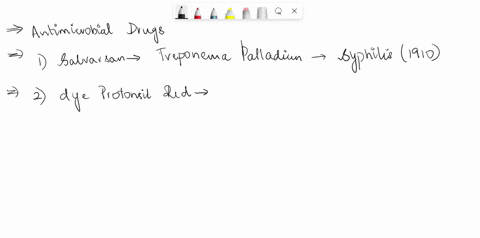 ⇒ Antimicrobial Drugs
⇒ 1) Salvarsan → Treponema Palladium → Syphilis (1910)
⇒ 2) dye Protonsil Red →